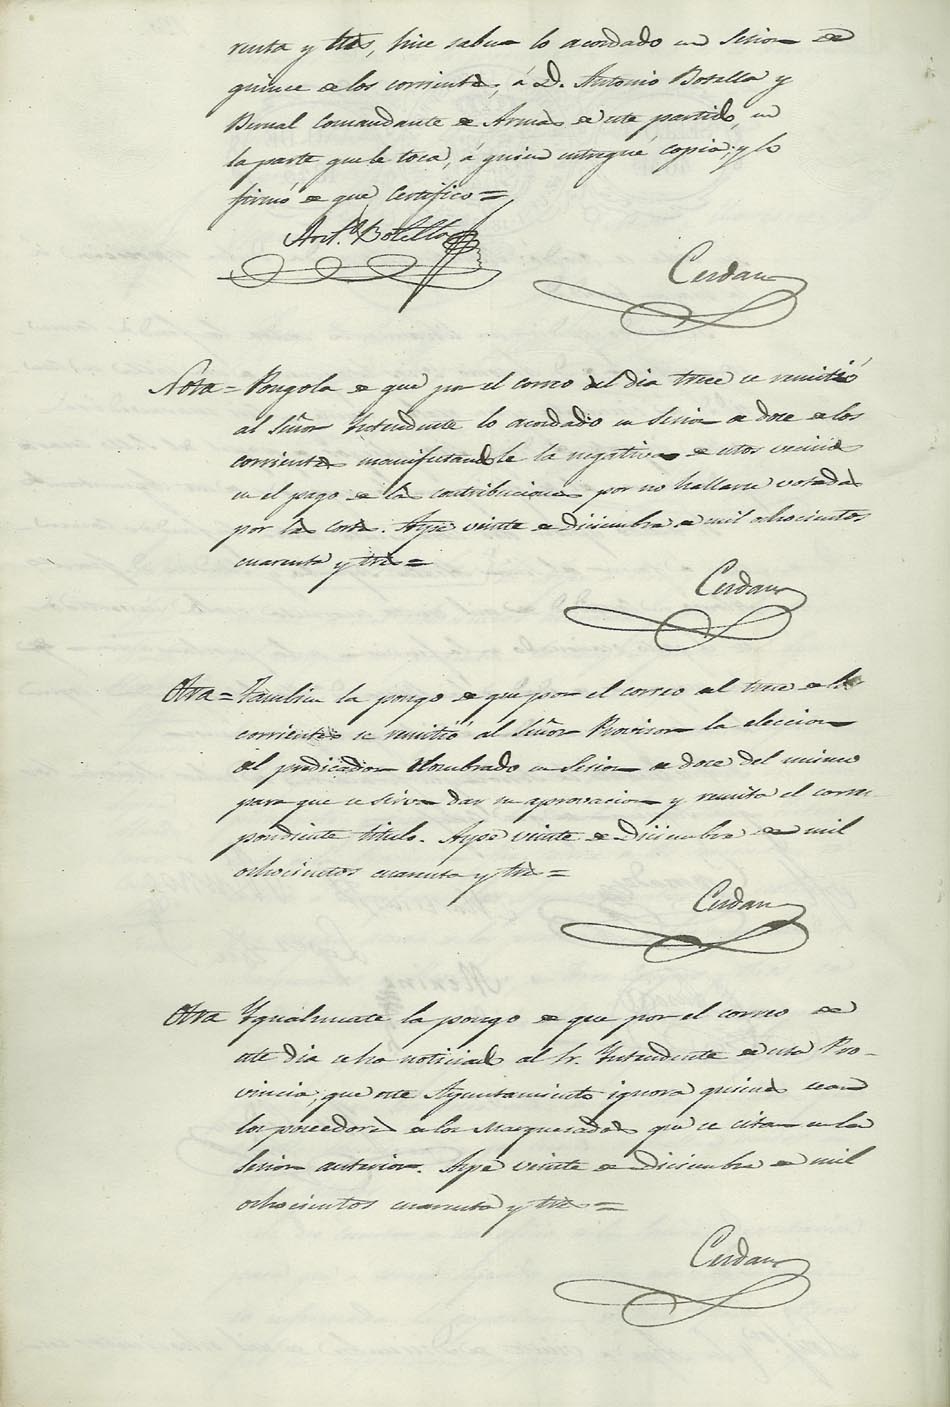 renta y tres, hice saber lo acordado en Sesion de
quince de los corrientes, á D. Antonio Botella y
Bernal Comandante de Armas de este partido, en
la parte que le toca, á quien entregué copia; y lo
firmó de que Certifico =
Ant.º Botella
Cerdan
Nota = Pongola de que por el correo del dia trece se remitió
al Señor Yntendente lo acordado en Sesion de doce de los
corrientes manifestandole la negativa de estos vecinos
en el pago de las contribuciones por no hallarse votadas
por las cortes. Aspe veinte de Diciembre de mil ochocientos
cuarenta y tres =
Cerdan
Otra = Tambien la pongo de que por el correo del trece de los
corrientes se remitió al Señor Provisor la eleccion
del predicador Nombrado en Sesion de doce del mismo
para que se sirva dar su aprovacion y remita el corres
pondiente titulo. Aspe veinte de Diciembre de mil
ochocientos cuarenta y tres =
Cerdan
Otra Ygualmente la pongo de que por el correo de
este dia se ha noticiado al Sr. Yntendente de esta Pro-
vincia, que este Ayuntamiento ignora quienes sean
los poseedores de los Marquesados que se citan en la
Sesion anterior. Aspe veinte de Diciembre de mil
ochocientos cuarenta y tres =
Cerdan